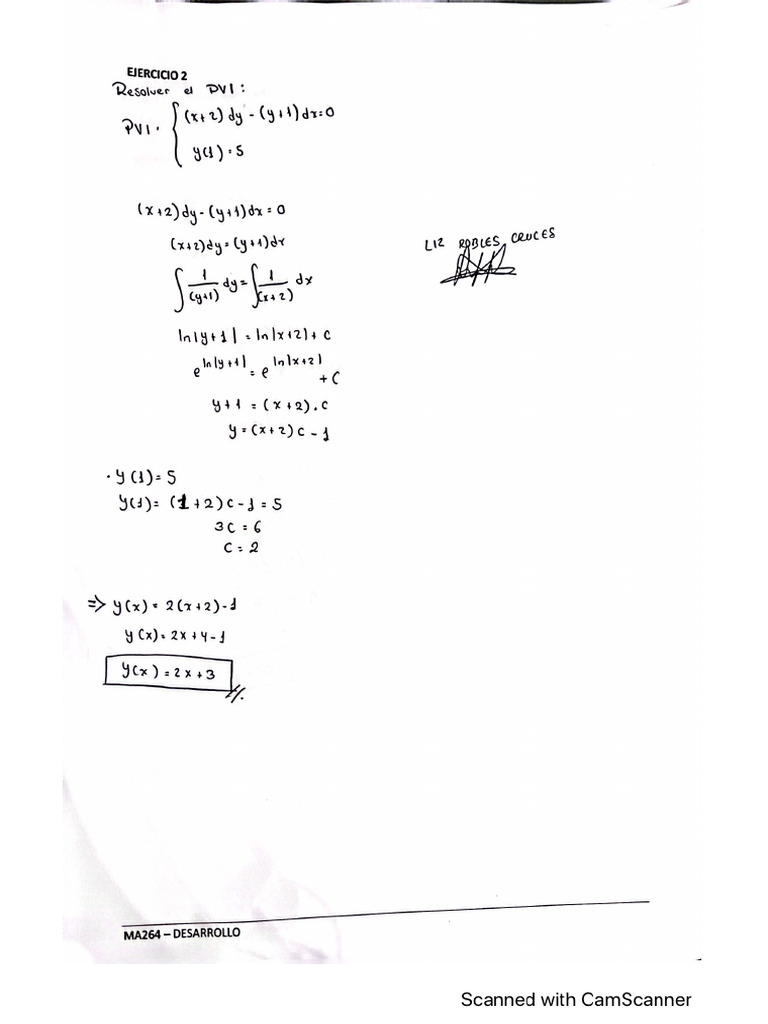 EJERCICIO 2
Resolver el PVI:
PVI. { (x+2)dy-(y+1)dx=0
y(1)=5
(x+2)dy-(y+1)dx=0
(x+2)dy=(y+1)dx
∫ 1/(y+1) dy = ∫ 1/(x+2) dx
LIZ ROBLES CRUCES
ln|y+1| = ln|x+2| + c
e^ln|y+1| = e^ln|x+2| + C
y+1 = (x+2).c
y = (x+2)c-1
· y(1)=5
y(1)= (1+2)c-1=5
3C=6
C=2
=> y(x)= 2(x+2)-1
y(x)= 2x+4-1
y(x)=2x+3 //.
MA264 – DESARROLLO
Scanned with CamScanner